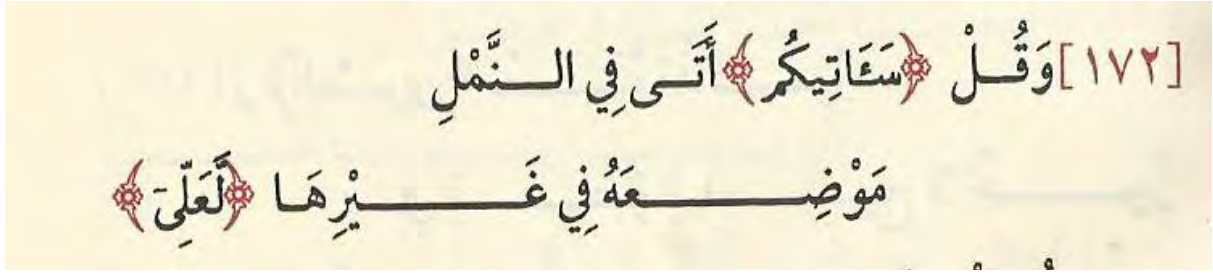 [١٧٢] وَقُلْ ﴿سَـَٔاتِيكُم﴾ أَتَى فِي النَّمْلِ
مَوْضِعَهُ فِي غَيْرِهَا ﴿لَّعَلِّيٓ﴾